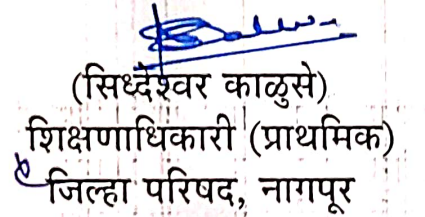 (सिध्देश्वर काळुसे)
शिक्षणाधिकारी (प्राथमिक)
जिल्हा परिषद, नागपूर